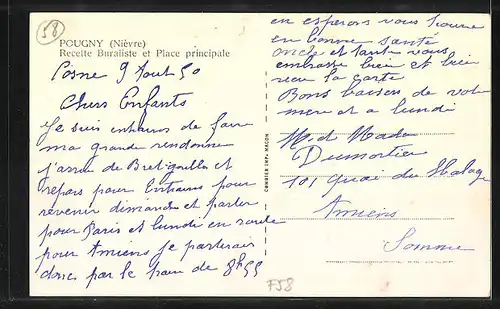 58
POUGNY (Nièvre)
Recette Buraliste et Place principale
Cosne 9 Aout 50
Chers Enfants
Je suis entrain de faire
ma grande randonnee
j'arrive de et
repars pour pour
revenir dimanche et partir
pour Paris et lundi en route
pour Amiens je partirais
donc par le train de 8h55
en esperons vous trouver
en bonne santé
oncle et tante vous
embrasse bien et bien
recu la carte
Bons baisers de votre
mere et a lundi
COMBIER IMP. MACON
M et Madame
Dumortier
101 Quai du Halage
Amiens
Somme
F58